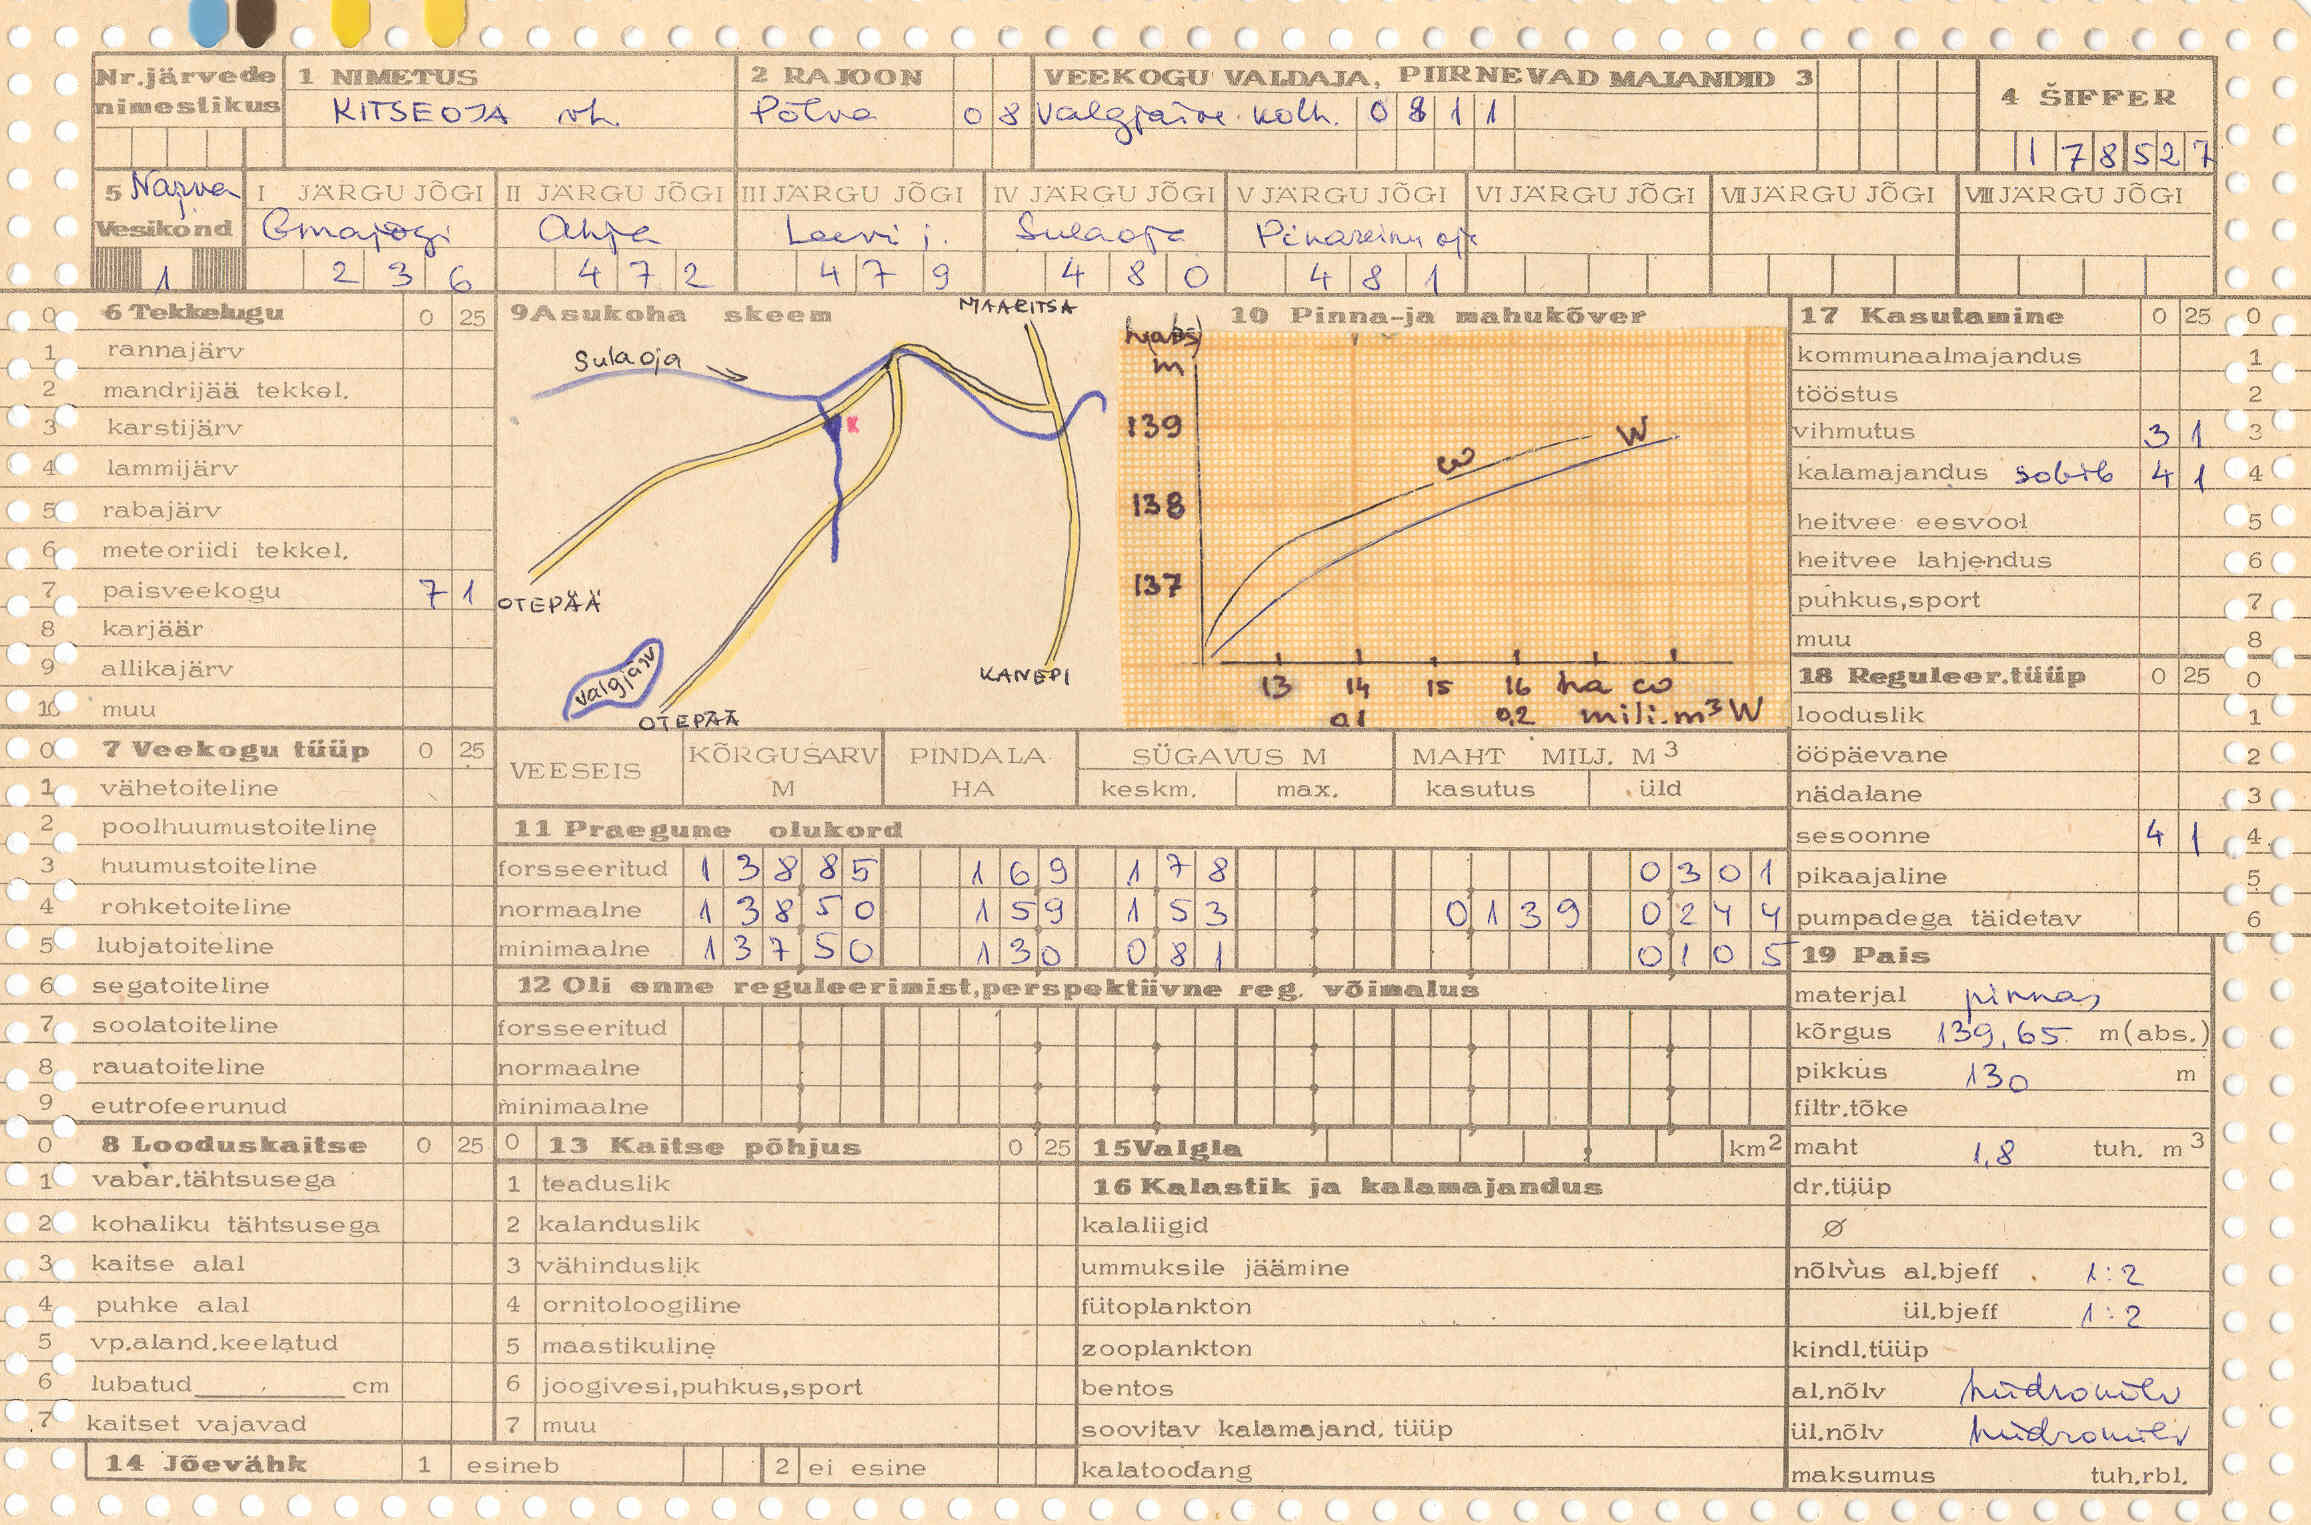 Nr.järvede nimestikus
1 NIMETUS
KITSEOJA vh.
2 RAJOON
Põlva 08
VEEKOGU VALDAJA, PIIRNEVAD MAJANDID 3
Valgjärve kolh. 0811
4 ŠIFFER
178527
5 Narva Vesikond 1
I JÄRGU JÕGI
Emajõgi
236
II JÄRGU JÕGI
Ahja
472
III JÄRGU JÕGI
Leevi j.
479
IV JÄRGU JÕGI
Sulaoja
480
V JÄRGU JÕGI
481
VI JÄRGU JÕGI
VII JÄRGU JÕGI
VIII JÄRGU JÕGI
0 6 Tekkelugu 0 25
1 rannajärv
2 mandrijää tekkel.
3 karstijärv
4 lammijärv
5 rabajärv
6 meteoriidi tekkel.
7 paisveekogu 7 1
8 karjäär
9 allikajärv
10 muu
9 Asukoha skeem
MAARITSA
Sulaoja
K
OTEPÄÄ
Valgjärv
OTEPÄÄ
KANEPI
10 Pinna-ja mahukõver
h(abs)
m
139
138
137
ω
W
13 14 15 16 ha ω
0,1 0,2 milj.m³ W
17 Kasutamine 0 25 0
kommunaalmajandus 1
tööstus 2
vihmutus 3 1 3
kalamajandus sobib 4 1 4
heitvee eesvool 5
heitvee lahjendus 6
puhkus,sport 7
muu 8
18 Reguleer.tüüp 0 25 0
looduslik 1
ööpäevane 2
nädalane 3
sesoonne 4 1 4
pikaajaline 5
pumpadega täidetav 6
0 7 Veekogu tüüp 0 25
1 vähetoiteline
2 poolhuumustoiteline
3 huumustoiteline
4 rohketoiteline
5 lubjatoiteline
6 segatoiteline
7 soolatoiteline
8 rauatoiteline
9 eutrofeerunud
VEESEIS KÕRGUSARV M PINDALA HA SÜGAVUS M keskm. max. MAHT MILJ. M³ kasutus üld
11 Praegune olukord
forsseeritud 13885 169 178 0301
normaalne 13850 159 153 0139 0244
minimaalne 13750 130 081 0105
12 Oli enne reguleerimist,perspektiivne reg. võimalus
forsseeritud
normaalne
minimaalne
19 Pais
materjal pinnas
kõrgus 139,65 m(abs.)
pikkus 130 m
filtr.tõke
maht 1,8 tuh. m³
dr.tüüp
Ø
nõlvus al.bjeff 1:2
ül.bjeff 1:2
kindl.tüüp
al.nõlv hüdrokülv
ül.nõlv hüdrokülv
maksumus tuh.rbl.
0 8 Looduskaitse 0 25
1 vabar.tähtsusega
2 kohaliku tähtsusega
3 kaitse alal
4 puhke alal
5 vp.aland.keelatud
6 lubatud cm
7 kaitset vajavad
0 13 Kaitse põhjus 0 25
1 teaduslik
2 kalanduslik
3 vähinduslik
4 ornitoloogiline
5 maastikuline
6 joogivesi,puhkus,sport
7 muu
15 Valgla km²
16 Kalastik ja kalamajandus
kalaliigid
ummuksile jäämine
fütoplankton
zooplankton
bentos
soovitav kalamajand. tüüp
kalatoodang
14 Jõevähk 1 esineb 2 ei esine